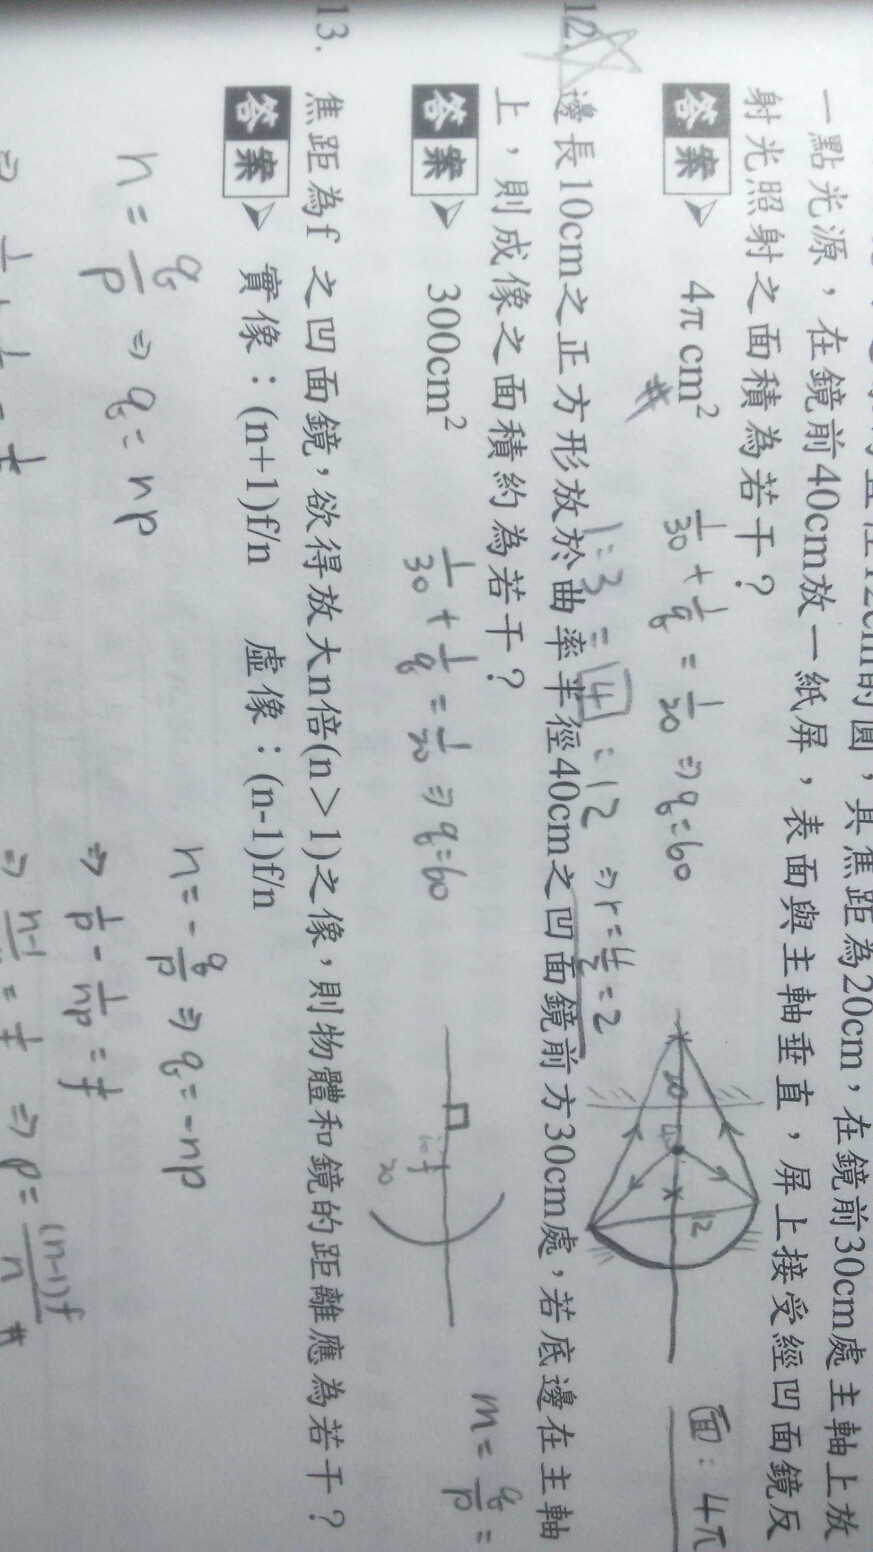 直徑12cm的圓,其焦距為20cm,在鏡前30cm處主軸上放
一點光源,在鏡前40cm放一紙屏,表面與主軸垂直,屏上接受經凹面鏡反
射光照射之面積為若干?
答案 4π cm²
1/30 + 1/q = 1/20 ⇒ q=60
1:3 = 4:12 ⇒ r = 4/2 = 2
20
12
面:4π
12. 邊長10cm之正方形放於曲率半徑40cm之凹面鏡前方30cm處,若底邊在主軸
上,則成像之面積約為若干?
答案 300cm²
1/30 + 1/q = 1/20 ⇒ q=60
f
20
m = q/p =
13. 焦距為f 之凹面鏡,欲得放大n倍(n>1)之像,則物體和鏡的距離應為若干?
答案 實像:(n+1)f/n 虛像:(n-1)f/n
n = q/p ⇒ q = np
n = -q/p ⇒ q = -np
⇒ 1/p - 1/np = 1/f
⇒ p = (n-1)f/n #